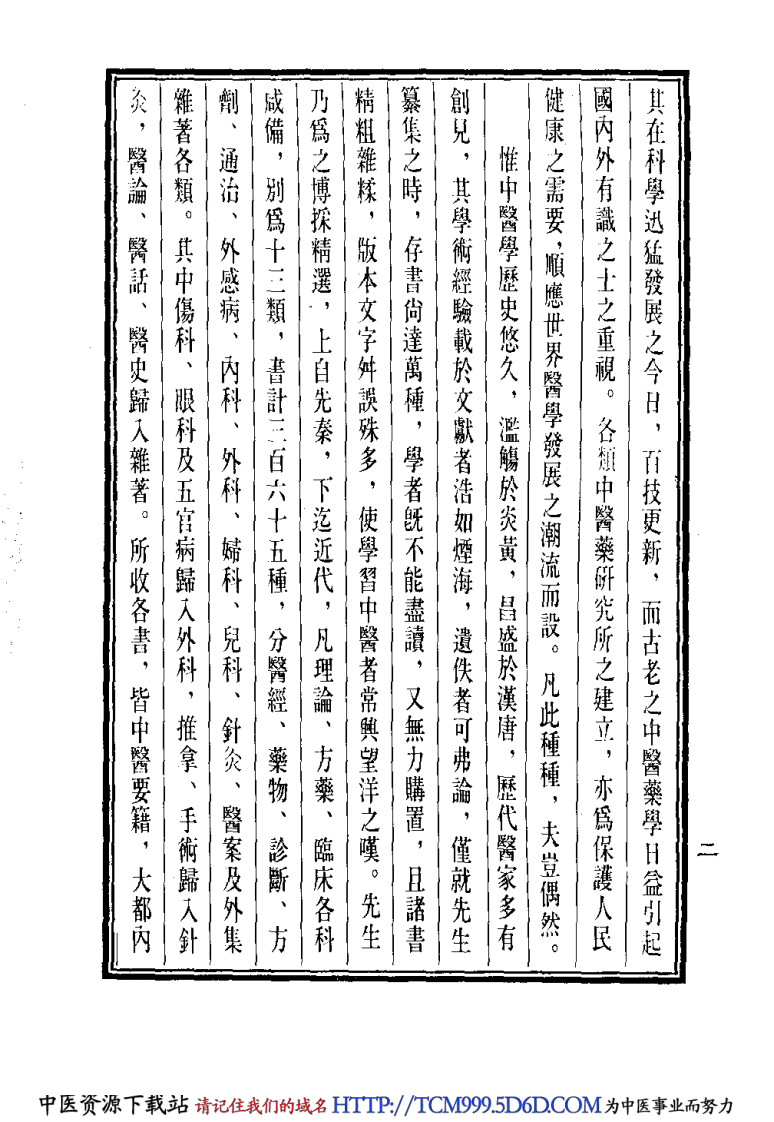 其在科學迅猛發展之今日，百技更新，而古老之中醫藥學日益引起
國內外有識之士之重視。各類中醫藥研究所之建立，亦爲保護人民
健康之需要，順應世界醫學發展之潮流而設。凡此種種，夫豈偶然。
惟中醫學歷史悠久，濫觴於炎黃，昌盛於漢唐，歷代醫家多有
創見，其學術經驗載於文獻者浩如煙海，遺佚者可弗論，僅就先生
纂集之時，存書尙達萬種，學者旣不能盡讀，又無力購置，且諸書
精粗雜糅，版本文字舛誤殊多，使學習中醫者常興望洋之嘆。先生
乃爲之博採精選，上自先秦，下迄近代，凡理論、方藥、臨床各科
咸備，別爲十三類，書計三百六十五種，分醫經、藥物、診斷、方
劑、通治、外感病、內科、外科、婦科、兒科、針灸、醫案及外集
雜著各類。其中傷科、眼科及五官病歸入外科，推拿、手術歸入針
灸，醫論、醫話、醫史歸入雜著。所收各書，皆中醫要籍，大都內
二
中医资源下载站 请记住我们的域名 HTTP://TCM999.5D6D.COM 为中医事业而努力